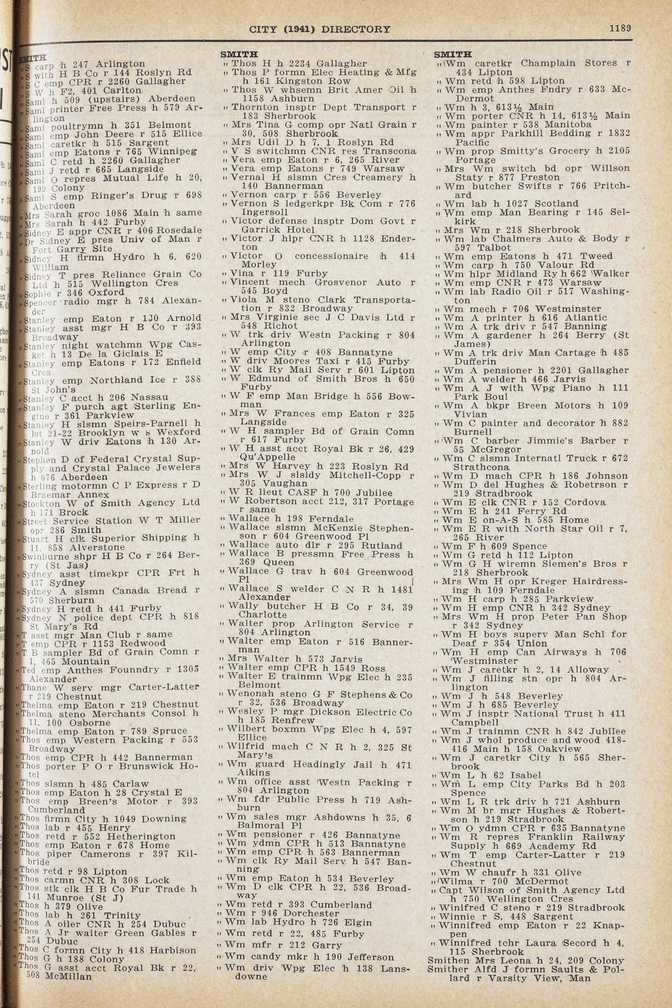 CITY (1941) DIRECTORY 1189
SMITH
" S carp h 247 Arlington
" S with H B Co r 144 Roslyn Rd
" S C emp CPR r 2260 Gallagher
" S W h F2, 401 Carlton
" Saml h 509 (upstairs) Aberdeen
" Saml printer Free Press h 579 Ar-
lington
" Saml poultrymn h 351 Belmont
" Saml emp John Deere r 515 Ellice
" Saml caretkr h 515 Sargent
" Saml emp Eatons r 765 Winnipeg
" Saml C retd h 2260 Gallagher
" Saml J retd r 665 Langside
" Saml O repres Mutual Life h 20,
199 Colony
" Saml S emp Ringer's Drug r 698
Aberdeen
" Mrs Sarah groc 1086 Main h same
" Mrs Sarah h 442 Furby
" Sidney E appr CNR r 406 Rosedale
" Dr Sidney E pres Univ of Man r
Fort Garry Site
" Sidney H flrmn Hydro h 6, 620
William
" Sidney T pres Reliance Grain Co
Ltd h 515 Wellington Cres
" Sophie r 346 Oxford
" Spencer radio mgr h 784 Alexan-
der
" Stanley emp Eaton r 130 Arnold
" Stanley asst mgr H B Co r 393
Broadway
" Stanley night watchmn Wpg Cas-
ket h 13 De la Giclais E
" Stanley emp Eatons r 172 Enfield
Cres
" Stanley emp Northland Ice r 388
St John's
" Stanley C acct h 206 Nassau
" Stanley F purch agt Sterling En-
gine r 361 Parkview
" Stanley H slsmn Speirs-Parnell h
lot 21-22 Brooklyn w s Wexford
" Stanley W driv Eatons h 130 Ar-
nold
" Stephen D of Federal Crystal Sup-
ply and Crystal Palace Jewelers
h 676 Aberdeen
" Sterling motormn C P Express r D
Braemar Annex
" Stockton W of Smith Agency Ltd
h 171 Brock
" Street Service Station W T Miller
opr 286 Smith
" Stuart H clk Superior Shipping h
11, 858 Alverstone
" Swinburne shpr H B Co r 264 Ber-
ry (St Jas)
" Sydney asst timekpr CPR Frt h
437 Sydney
" Sydney A slsmn Canada Bread r
570 Sherburn
" Sydney H retd h 441 Furby
" Sydney N police dept CPR h 818
St Mary's Rd
" T asst mgr Man Club r same
" T emp CPR r 1153 Redwood
" T B sampler Bd of Grain Comn r
1, 465 Mountain
" Ted emp Anthes Founndry r 1305
Alexander
" Thane W serv mgr Carter-Latter
r 219 Chestnut
" Thelma emp Eaton r 219 Chestnut
" Thelma steno Merchants Consol h
11, 100 Osborne
" Thelma emp Eaton r 789 Spruce
" Thos emp Western Packing r 553
Broadway
" Thos emp CPR h 442 Bannerman
" Thos porter P O r Brunswick Ho-
tel
" Thos slsmn h 485 Carlaw
" Thos emp Eaton h 28 Crystal E
" Thos emp Breen's Motor r 393
Cumberland
" Thos flrmn City h 1049 Downing
" Thos lab r 455 Henry
" Thos retd r 552 Hetherington
" Thos emp Eaton r 678 Home
" Thos piper Camerons r 397 Kil-
bride
" Thos retd r 98 Lipton
" Thos carmn CNR h 308 Lock
" Thos stk clk H B Co Fur Trade h
141 Munroe (St J)
" Thos h 379 Olive
" Thos lab h 261 Trinity
" Thos A oiler CNR h 254 Dubuc
" Thos A Jr waiter Green Gables r
254 Dubuc
" Thos C formn City h 418 Harbison
" Thos G h 188 Colony
" Thos G asst acct Royal Bk r 22,
508 McMillan
SMITH
" Thos H h 2234 Gallagher
" Thos P formn Elec Heating & Mfg
h 161 Kingston Row
" Thos W whsemn Brit Amer Oil h
1158 Ashburn
" Thornton insptr Dept Transport r
183 Sherbrook
" Mrs Tina G comp opr Natl Grain r
30, 508 Sherbrook
" Mrs Udil D h 7, 1 Roslyn Rd
" V S switchmn CNR res Transcona
" Vera emp Eaton r 6, 265 River
" Vera emp Eatons r 749 Warsaw
" Vernal H slsmn Cres Creamery h
140 Bannerman
" Vernon carp r 556 Beverley
" Vernon S ledgerkpr Bk Com r 776
Ingersoll
" Victor defense insptr Dom Govt r
Garrick Hotel
" Victor J hlpr CNR h 1128 Ender-
ton
" Victor O concessionaire h 414
Morley
" Vina r 119 Furby
" Vincent mech Grosvenor Auto r
545 Boyd
" Viola M steno Clark Transporta-
tion r 832 Broadway
" Mrs Virginie sec J C Davis Ltd r
548 Richot
" W trk driv Westn Packing r 804
Arlington
" W emp City r 408 Bannatyne
" W driv Moores Taxi r 415 Furby
" W clk Ry Mail Serv r 601 Lipton
" W Edmund of Smith Bros h 650
Furby
" W F emp Man Bridge h 556 Bow-
man
" Mrs W Frances emp Eaton r 325
Langside
" W H sampler Bd of Grain Comn
r 617 Furby
" W H asst acct Royal Bk r 26, 429
Qu'Appelle
" Mrs W Harvey h 223 Roslyn Rd
" Mrs W J slsldy Mitchell-Copp r
305 Vaughan
" W R lieut CASF h 700 Jubilee
" W Robertson acct 212, 317 Portage
r same
" Wallace h 198 Ferndale
" Wallace slsmn McKenzie Stephen-
son r 604 Greenwood Pl
" Wallace auto dlr r 295 Rutland
" Wallace B pressmn Free Press h
369 Queen
" Wallace G trav h 604 Greenwood
Pl
" Wallace S welder C N R h 1481
Alexander
" Wally butcher H B Co r 34, 39
Charlotte
" Walter prop Arlington Service r
804 Arlington
" Walter emp Eaton r 516 Banner-
man
" Mrs Walter h 573 Jarvis
" Walter emp CPR h 1549 Ross
" Walter E trainmn Wpg Elec r 235
Belmont
" Wenonah steno G F Stephens & Co
r 32, 536 Broadway
" Wesley P mgr Dickson Electric Co
h 185 Renfrew
" Wilbert boxmn Wpg Elec h 4, 597
Ellice
" Wilfrid mach C N R h 2, 325 St
Mary's
" Wm guard Headingly Jail h 471
Aikins
" Wm office asst Westn Packing r
804 Arlington
" Wm fdr Public Press h 719 Ash-
burn
" Wm sales mgr Ashdowns h 35, 6
Balmoral Pl
" Wm pensioner r 426 Bannatyne
" Wm ydmn CPR h 513 Bannatyne
" Wm emp CPR h 563 Bannerman
" Wm clk Ry Mail Serv h 547 Ban-
ning
" Wm emp Eaton h 534 Beverley
" Wm D clk CPR h 22, 536 Broad-
way
" Wm retd r 393 Cumberland
" Wm r 946 Dorchester
" Wm lab Hydro h 726 Elgin
" Wm retd r 22, 485 Furby
" Wm mfr r 212 Garry
" Wm candy mkr h 190 Jefferson
" Wm driv Wpg Elec h 138 Lans-
downe
SMITH
" Wm caretkr Champlain Stores r
434 Lipton
" Wm retd h 598 Lipton
" Wm emp Anthes Fndry r 633 Mc-
Dermot
" Wm h 3, 613½ Main
" Wm porter CNR h 14, 613½ Main
" Wm painter r 538 Manitoba
" Wm appr Parkhill Bedding r 1832
Pacific
" Wm prop Smitty's Grocery h 2105
Portage
" Mrs Wm switch bd opr Willson
Staty r 877 Preston
" Wm butcher Swifts r 766 Pritch-
ard
" Wm lab h 1027 Scotland
" Wm emp Man Bearing r 145 Sel-
kirk
" Mrs Wm r 218 Sherbrook
" Wm lab Chalmers Auto & Body r
597 Talbot
" Wm emp Eatons h 471 Tweed
" Wm carp h 750 Valour Rd
" Wm hlpr Midland Ry h 662 Walker
" Wm emp CNR r 473 Warsaw
" Wm lab Radio Oil r 517 Washing-
ton
" Wm mech r 706 Westminster
" Wm A printer h 616 Atlantic
" Wm A trk driv r 547 Banning
" Wm A gardener h 264 Berry (St
James)
" Wm A trk driv Man Cartage h 485
Dufferin
" Wm A pensioner h 2201 Gallagher
" Wm A welder h 466 Jarvis
" Wm A J with Wpg Piano h 111
Park Boul
" Wm A bkpr Breen Motors h 109
Vivian
" Wm C painter and decorator h 882
Burnell
" Wm C barber Jimmie's Barber r
55 McGregor
" Wm C slsmn Internatl Truck r 672
Strathcona
" Wm D mach CPR h 186 Johnson
" Wm D del Hughes & Robetrson r
219 Stradbrook
" Wm E clk CNR r 152 Cordova
" Wm E h 241 Ferry Rd
" Wm E on-A-S h 585 Home
" Wm E R with North Star Oil r 7,
265 River
" Wm F h 609 Spence
" Wm G retd h 112 Lipton
" Wm G H wiremn Siemen's Bros r
218 Sherbrook
" Mrs Wm H opr Kreger Hairdress-
ing h 109 Ferndale
" Wm H carp h 285 Parkview
" Wm H emp CNR h 342 Sydney
" Mrs Wm H prop Peter Pan Shop
r 342 Sydney
" Wm H boys superv Man Schl for
Deaf r 354 Union
" Wm H emp Can Airways h 706
Westminster
" Wm J caretkr h 2, 14 Alloway
" Wm J filling stn opr h 804 Ar-
lington
" Wm J h 548 Beverley
" Wm J h 685 Beverley
" Wm J insptr National Trust h 411
Campbell
" Wm J trainmn CNR h 842 Jubilee
" Wm J whol produce and wood 418-
416 Main h 158 Oakview
" Wm J caretkr City h 565 Sher-
brook
" Wm L h 62 Isabel
" Wm L emp City Parks Bd h 203
Spence
" Wm L R trk driv h 721 Ashburn
" Wm M br mgr Hughes & Robert-
son h 219 Stradbrook
" Wm O ydmn CPR r 635 Bannatyne
" Wm R repres Franklin Railway
Supply h 669 Academy Rd
" Wm T emp Carter-Latter r 219
Chestnut
" Wm W chaufr h 331 Olive
" Wilma r 700 McDermot
" Capt Wilson of Smith Agency Ltd
h 750 Wellington Cres
" Winifred C steno r 219 Stradbrook
" Winnie r S, 448 Sargent
" Winnifred emp Eaton r 22 Knap-
pen
" Winnifred tchr Laura Secord h 4,
115 Sherbrook
Smithen Mrs Leona h 24, 209 Colony
Smither Alfd J formn Saults & Pol-
lard r Varsity View, Man